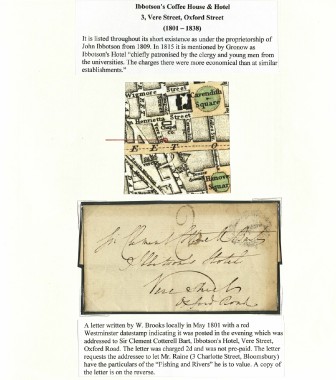 Ibbotson's Coffee House & Hotel
3, Vere Street, Oxford Street
(1801 – 1838)
It is listed throughout its short existence as under the proprietorship of
John Ibbotson from 1809. In 1815 it is mentioned by Gronow as
Ibbotson's Hotel "chiefly patronised by the clergy and young men from
the universities. The charges there were more economical than at similar
establishments."
Wigmore Street
Cavendish
Square
Henrietta
Street
E E T O
Hanover
Square
2
Sir Clement Cotterell Bart
Ibbotsons Hotel
Vere Street
Oxford Road
A letter written by W. Brooks locally in May 1801 with a red
Westminster datestamp indicating it was posted in the evening which was
addressed to Sir Clement Cotterell Bart, Ibbotson's Hotel, Vere Street,
Oxford Road. The letter was charged 2d and was not pre-paid. The letter
requests the addressee to let Mr. Raine (3 Charlotte Street, Bloomsbury)
have the particulars of the "Fishing and Rivers" he is to value. A copy of
the letter is on the reverse.